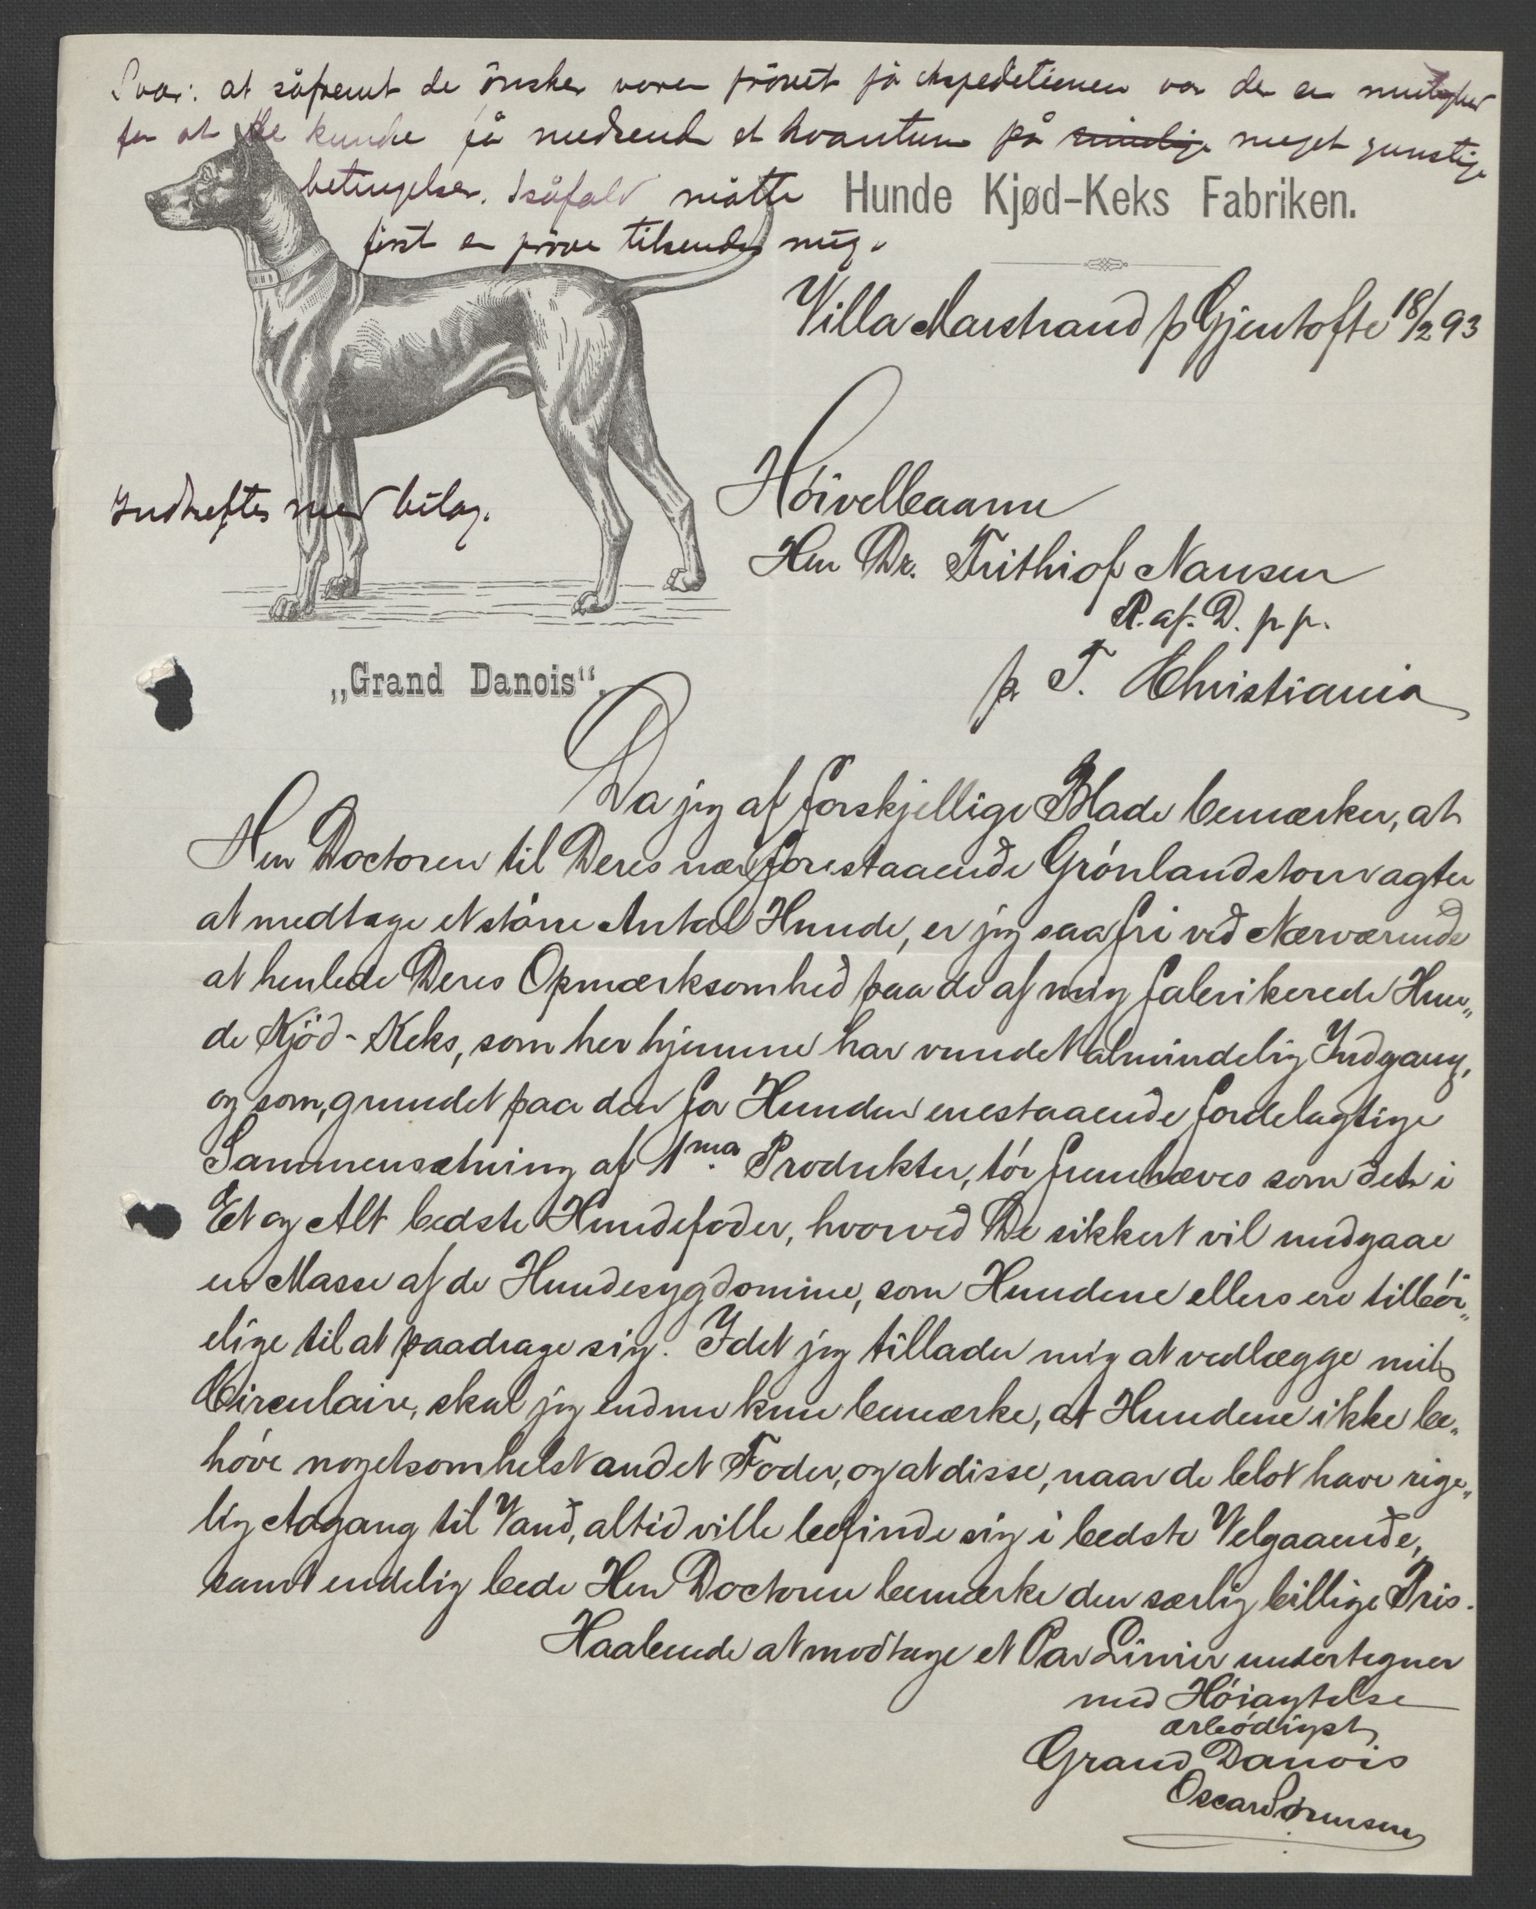 Svar: at såfremt de ønsker varen prøvet på expeditionen var der en mulighed
for at de kunde få medsend et kvantum på rimelige meget gunstige
betingelser. Isåfald måtte
først en prøve tilsendes mig.
Hunde Kjød-Keks Fabriken.
Villa Marstrand p Gjentofte 18/2 93
Indheftes med bilag.
Høivelbaarne
Herr Dr. Frithiof Nansen
R. af. D. p. p.
p. T. Christiania
„Grand Danois“.
Da jeg af forskjellige Blade bemærker, at
Herr Doctoren til Deres nær forestaaende Grønlandstour agter
at medtage et større Antal Hunde, er jeg saa fri ved Nærværende
at henlede Deres Opmærksomhed paa de af mig fabrikerede Hun„
de Kjød-Keks, som her hjemme har vundet almindelig Indgang,
og som, grundet paa den for Hunden enestaaende fordelagtige
Sammensætning af 1ma Produkter, tør fremhæves som det i
Et og Alt bedste Hundefoder, hvorved De sikkert vil undgaae
en Masse af de Hundesygdomme, som Hundene ellers ere tilbøi„
elige til at paadrage sig. Idet jeg tillader mig at vedlægge mit
Circulaire, skal jeg endnu kun bemærke, at Hundene ikke be„
høve nogetsomhelst andet Foder, og at disse, naar de blot have rige„
lig Adgang til Vand, altid ville befinde sig i bedste Velgaaende,
samt endelig bede Herr Doctoren bemærke den særlig billige Pris.
Haabende at modtage et Par Linier undertegner
med Høiagtelse
ærbødigst
Grand Danois
Oscar Sørensen